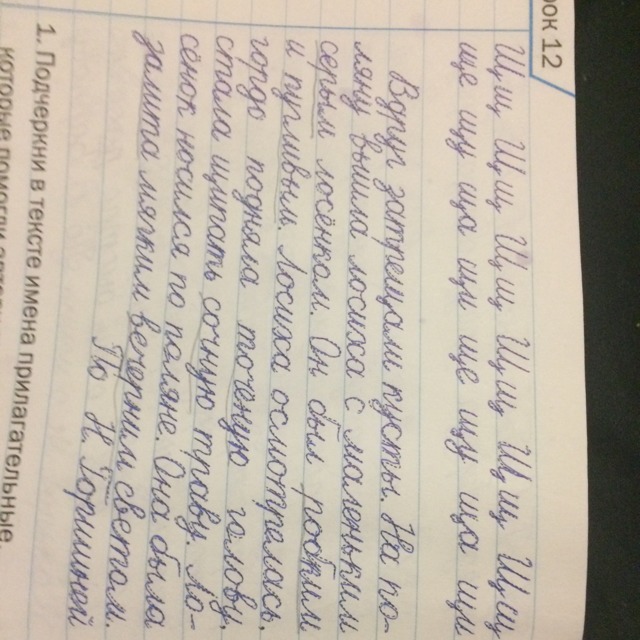 рок 12
Щщ Щщ Щщ Щщ Щщ Щщ
ще щу ща щи ще щу ща щи
Вдруг затрещали кусты. На по-
ляну вышла лосиха с маленьким
серым лосёнком. Он был робким
и пугливым. Лосиха осмотрелась.
гордо подняла точёную голову.
стала щипать сочную траву. Ло-
сёнок носился по поляне. Она была
залита мягким вечерним светом.
По К. Горшиной
1. Подчеркни в тексте имена прилагательные,
которые помогли